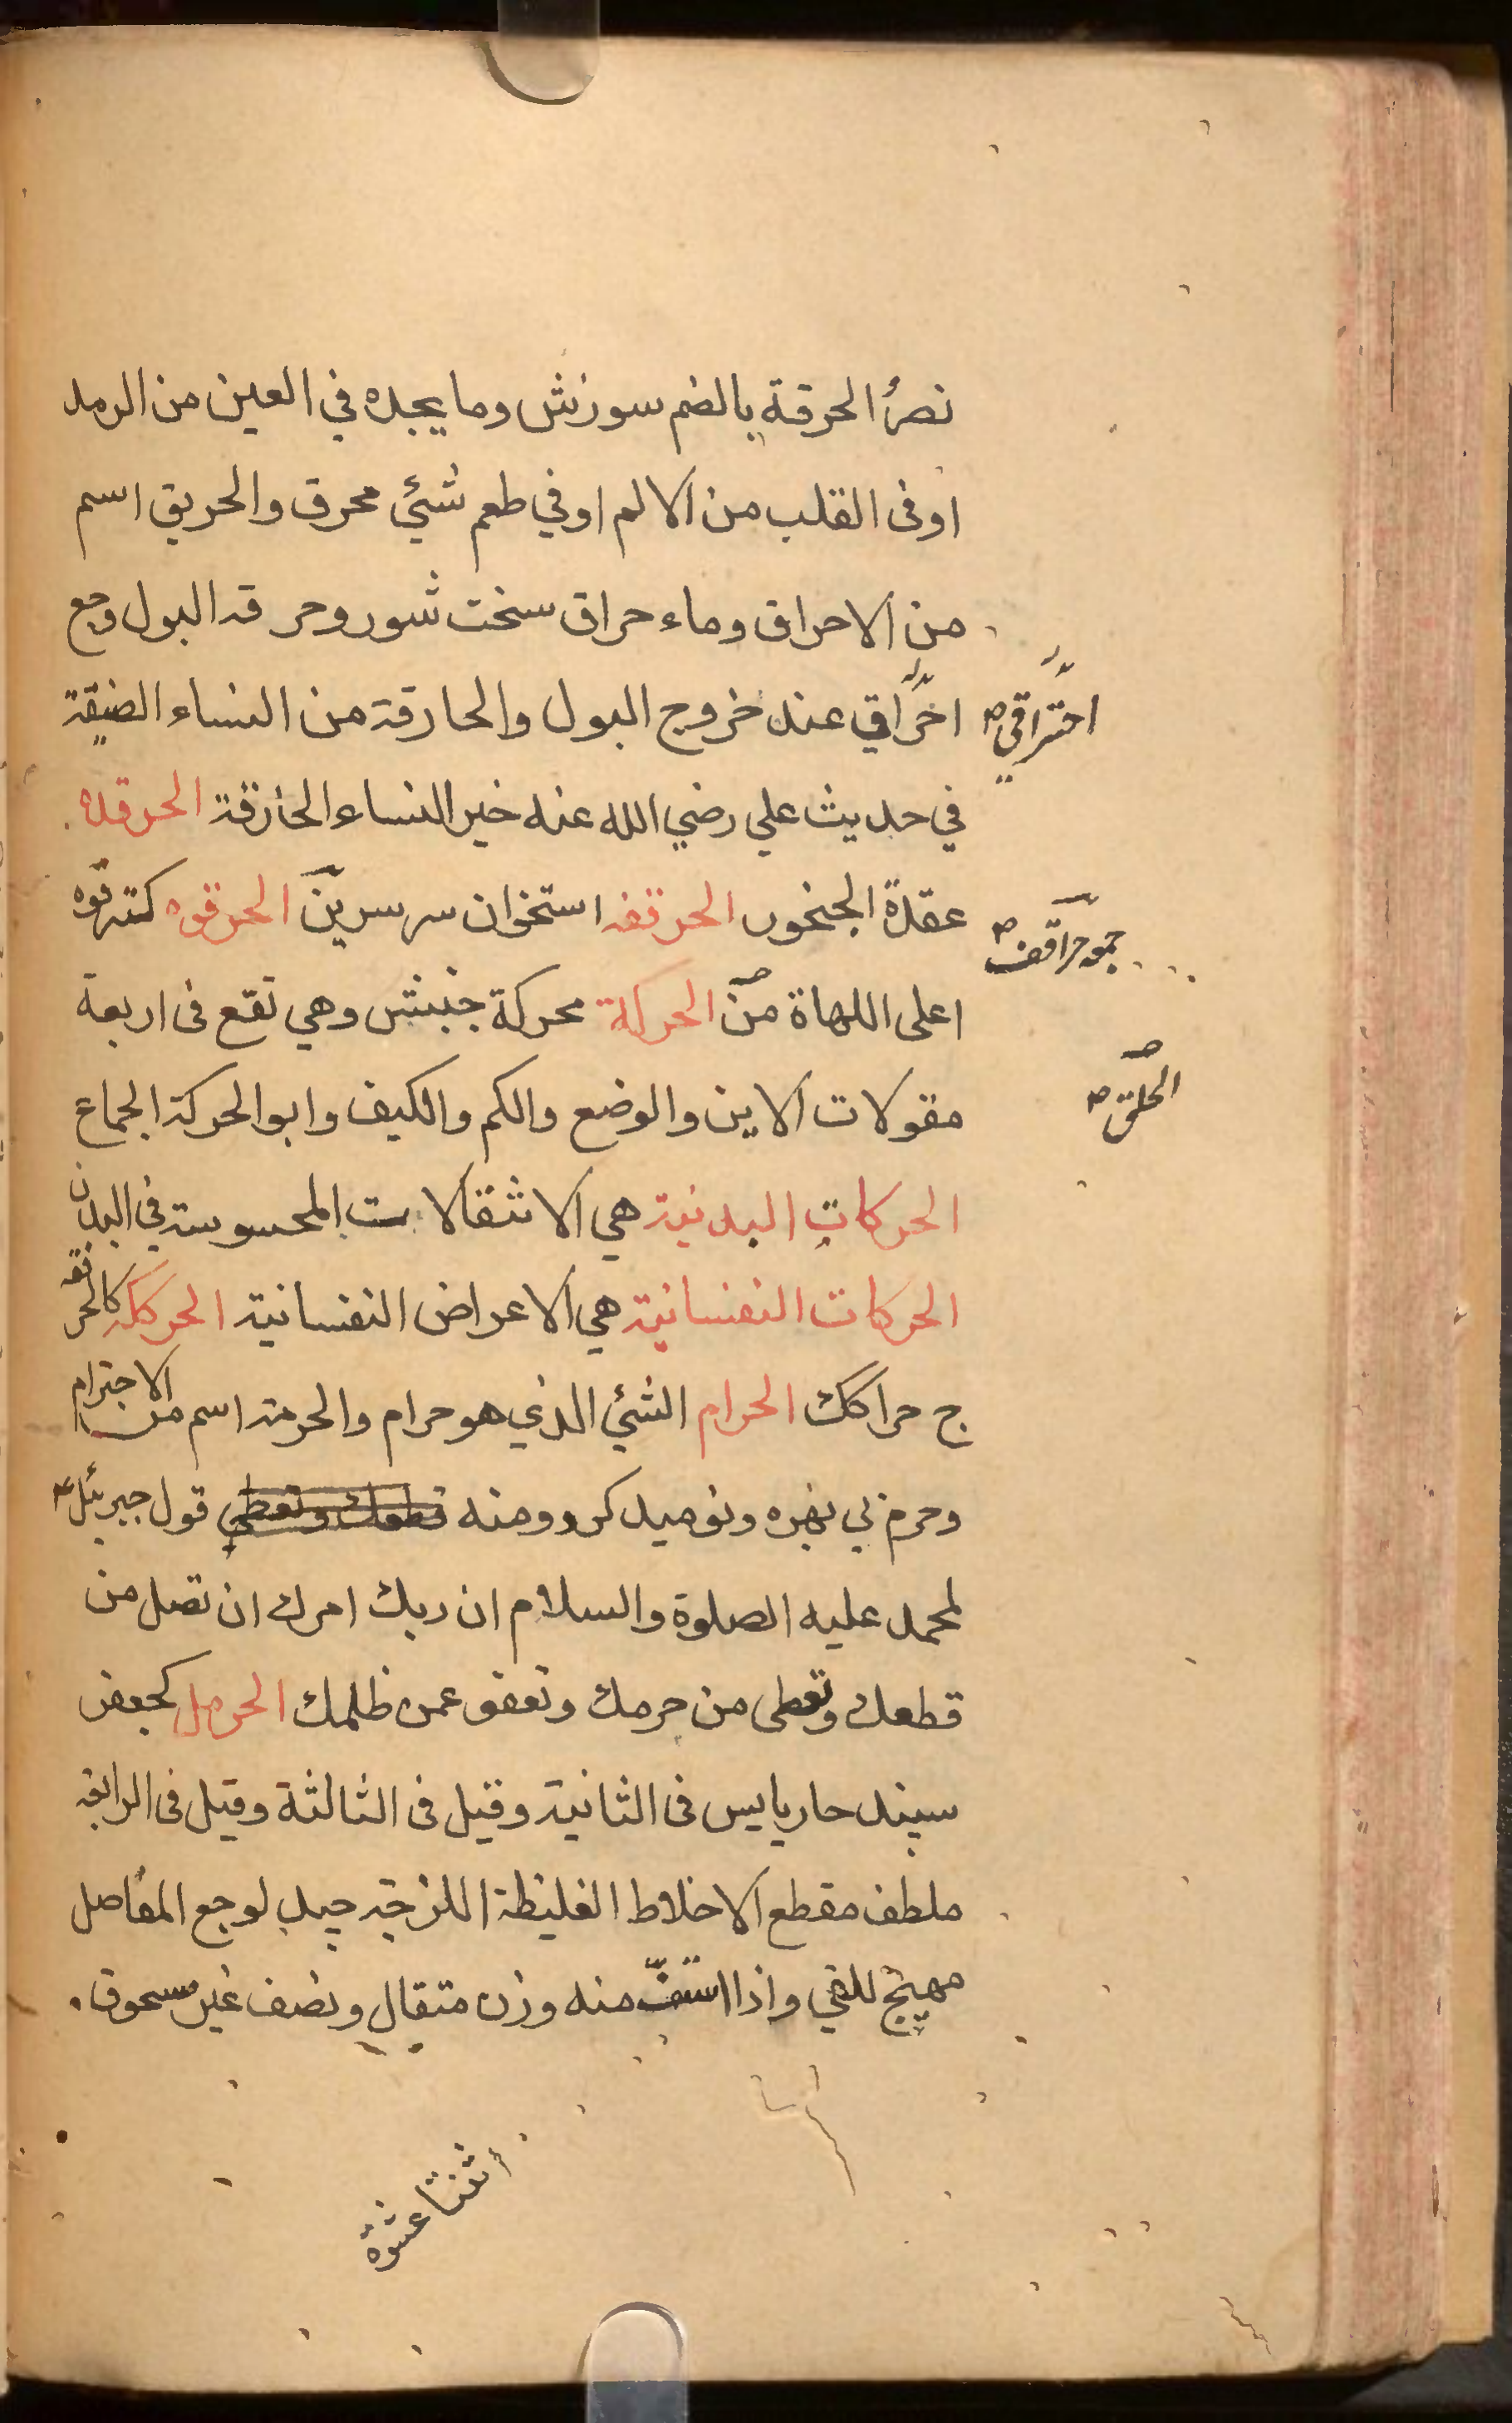 نصرُ الحرقة بالضم سوزش وما يجده في العين من الرمد
او فى القلب من الالم او في طعم شئي محرق والحريق اسم
من الاحراق وماء حراق سخت شور وحر قه البول وجع
اخرَّاقي عند خروج البول والحارقة من النساء الضيقة
احتراقي صح
في حديث علي رضي الله عنه خير النساء الحارقة الحرقده
عقدة الحنجور الحرقفه استخوان سر سرين الحرقوه كترقوه
جمع حراقف صح
اعلى اللهاة من الحركة محركة جنبش وهي تقع فى اربعة
الحلق صح
مقولات الاين والوضع والكم والكيف وابو الحركة الجماع
الحركات البدنية هي الانتقالات المحسوسة في البدن
الحركات النفسانية هي الاعراض النفسانية الحرككه كالحرقفه
ج حراكك الحرام الشئي الذي هو حرام والحرمة اسم من الاحترام
وحرم بي بهره ونوميد كرد ومنه قول جبرئيل ع
لمحمد عليه الصلوة والسلام ان ربك امرك ان تصل من
قطعك وتعطى من حرمك وتعفو عمن ظلمك الحرمل كجعفر
سپند حار يابس فى الثانية وقيل فى الثالثة وقيل فى الرابعة
ملطف مقطع الاخلاط الغليظة اللزجة جيد لوجع المفاصل
مهيج للقي واذا استفّ منه وزن مثقال ونصف غير مسحوق
اثنتا عشرة